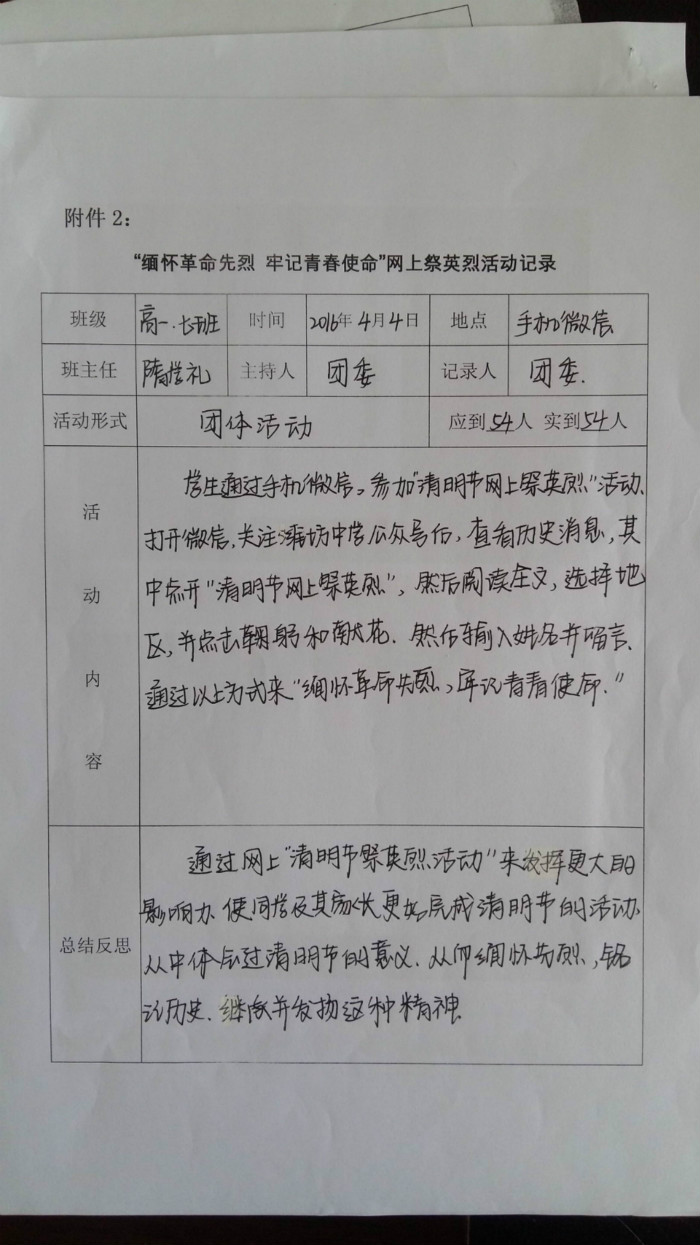 附件 2:
“缅怀革命先烈 牢记青春使命”网上祭英烈活动记录
班级 高一.七班 时间 2016年4月4日 地点 手机微信
班主任 隋学礼 主持人 团委 记录人 团委.
活动形式 团体活动 应到54人 实到54人
活动内容
学生通过手机微信。参加“清明节网上祭英烈”活动、
打开微信,关注潍坊中学公众号后,查看历史消息,其
中点开“清明节网上祭英烈”,然后阅读全文,选择地
区,并点击鞠躬和献花.然后输入姓名并留言.
通过以上方式来“缅怀革命先烈,牢记青春使命.”
总结反思
通过网上“清明节祭英烈活动”来发挥更大的
影响力.使同学及其家长更好完成清明节的活动、
从中体会过清明节的意义.从而缅怀先烈,铭
记历史.继承并发扬这种精神.